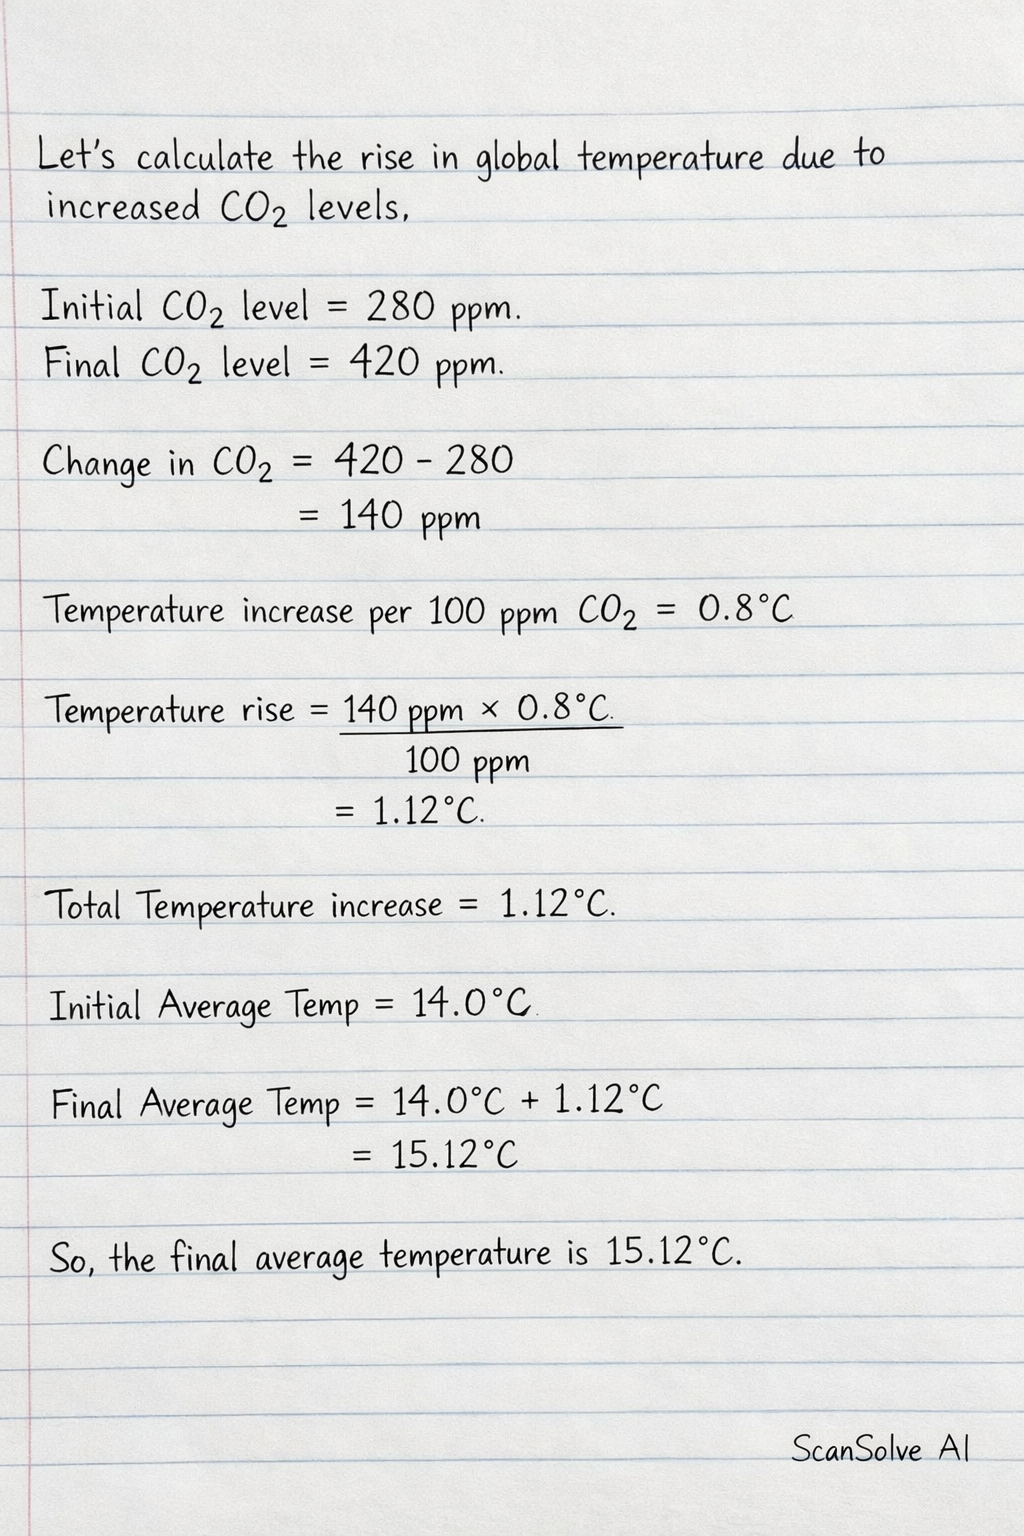 Let's calculate the rise in global temperature due to
increased CO₂ levels,
Initial CO₂ level = 280 ppm.
Final CO₂ level = 420 ppm.
Change in CO₂ = 420 - 280
= 140 ppm
Temperature increase per 100 ppm CO₂ = 0.8°C
Temperature rise = 140 ppm × 0.8°C.
100 ppm
= 1.12°C.
Total Temperature increase = 1.12°C.
Initial Average Temp = 14.0°C.
Final Average Temp = 14.0°C + 1.12°C
= 15.12°C
So, the final average temperature is 15.12°C.
ScanSolve AI